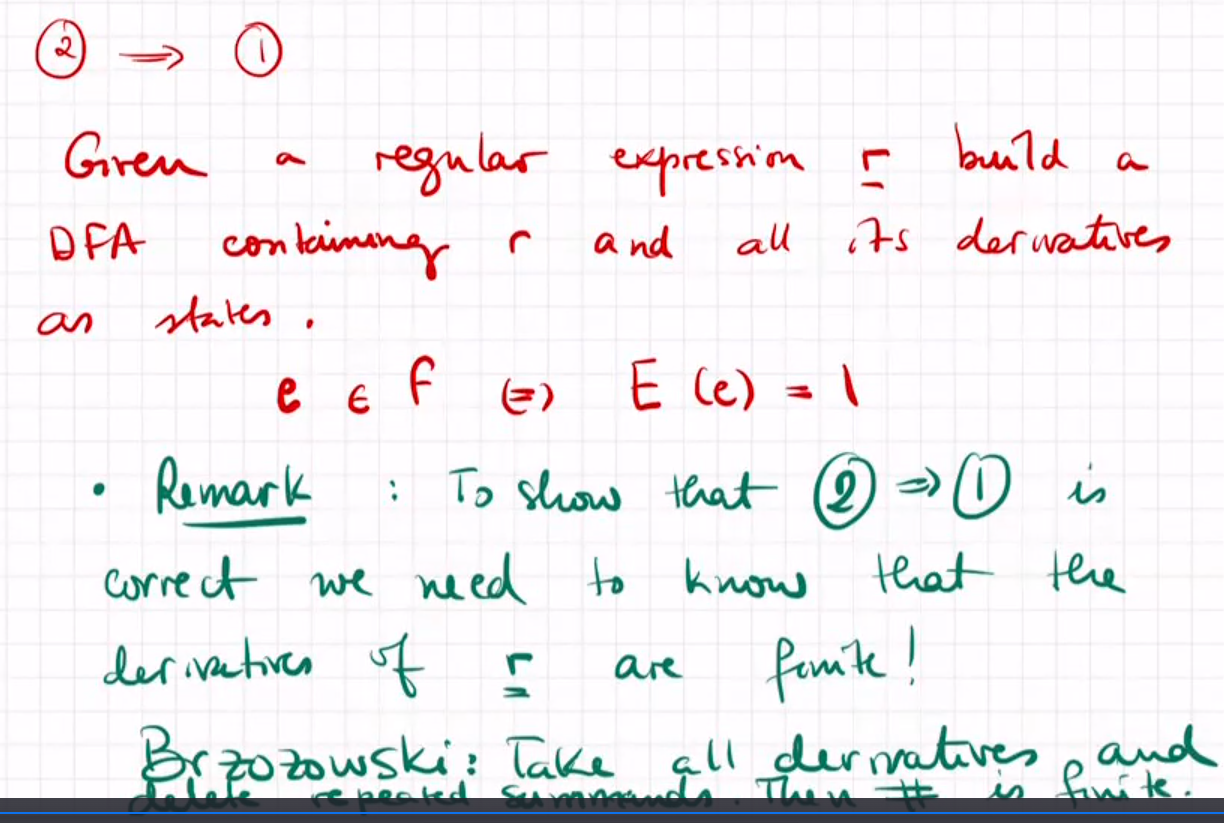 ② ⟹ ①
Given a regular expression r build a
DFA containing r and all its derivatives
as states.
e ∈ F (=) E(e) = 1
• Remark : To show that ② ⇒ ① is
correct we need to know that the
derivatives of r are finite!
Brzozowski: Take all derivatives and
delete repeated summands. Then # is finite.